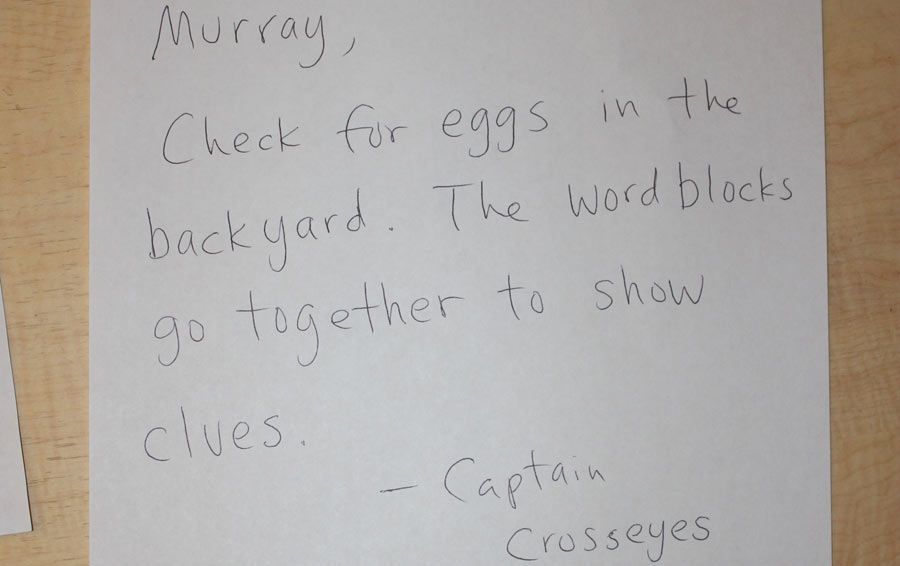 Murray,
Check for eggs in the
backyard. The word blocks
go together to show
clues.
– Captain
Crosseyes